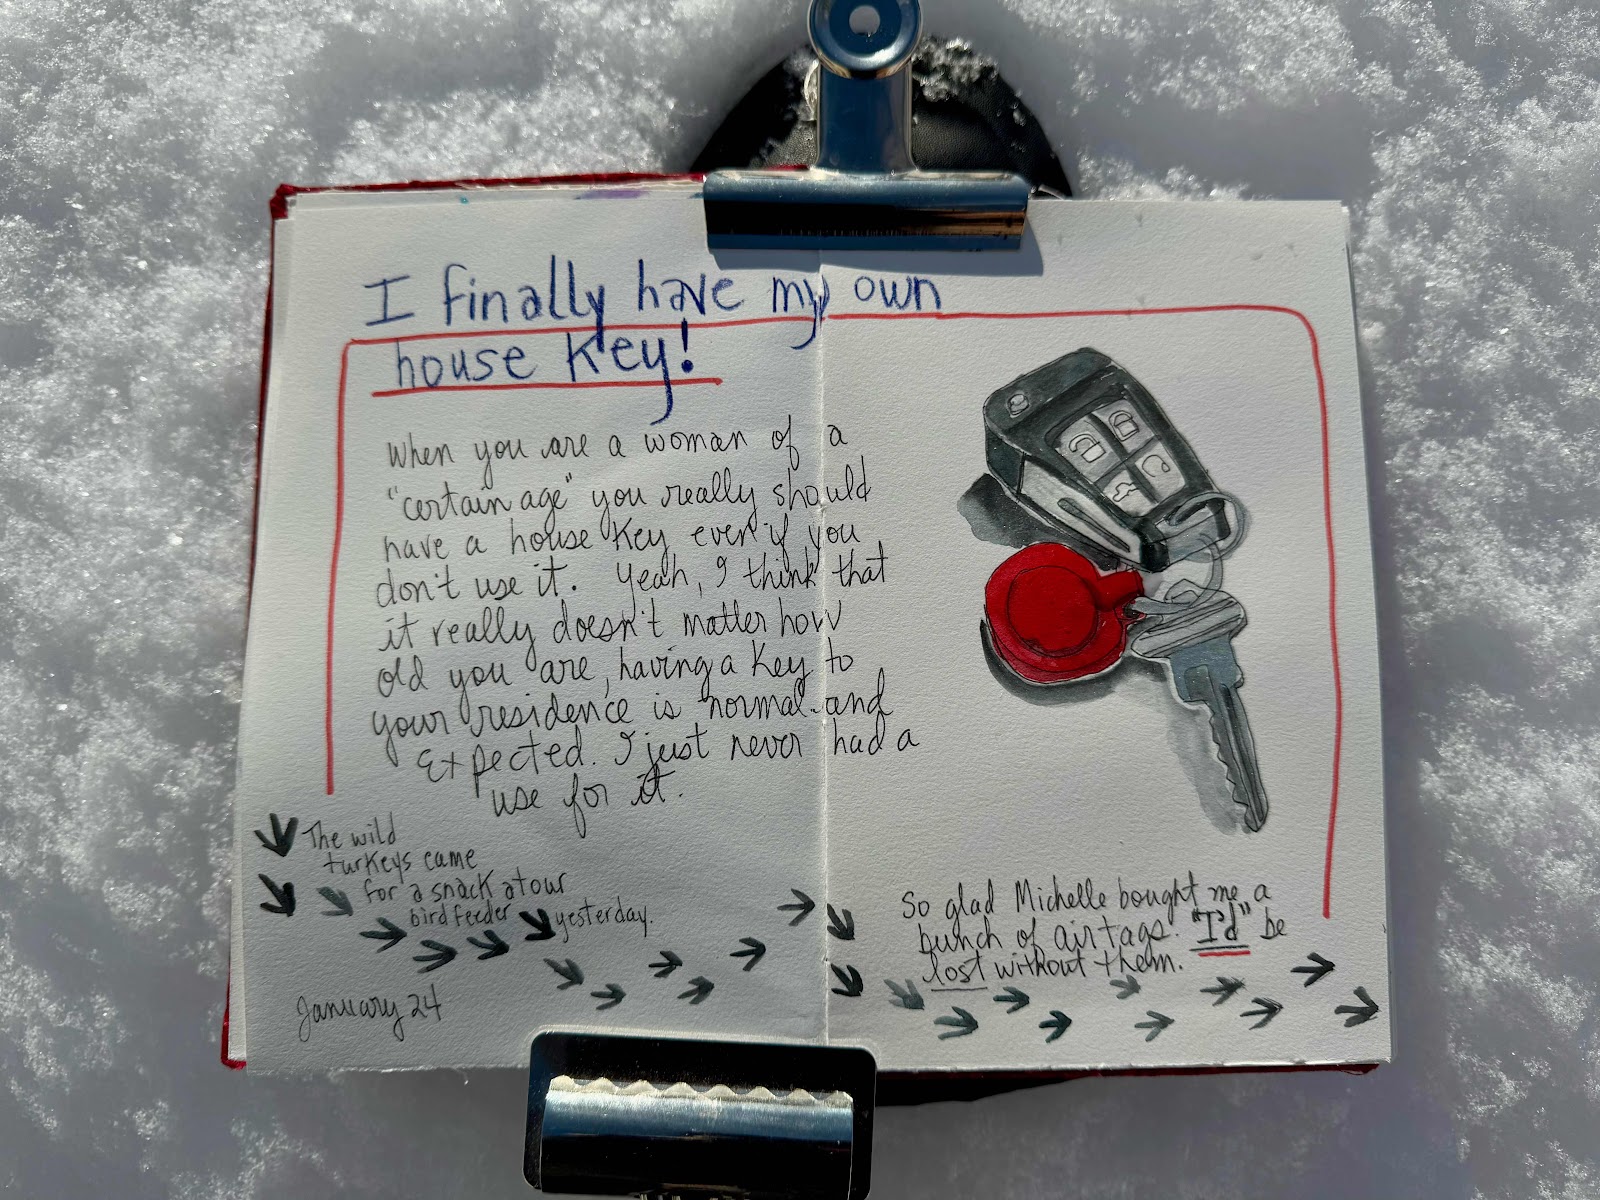 I finally have my own
house key!
When you are a woman of a
"certain age" you really should
have a house key even if you
don't use it. Yeah, I think that
it really doesn't matter how
old you are, having a key to
your residence is normal and
expected. I just never had a
use for it.
The wild
turkeys came
for a snack at our
bird feeder
yesterday.
January 24
So glad Michelle bought me a
bunch of air tags. "I'd" be
lost without them.